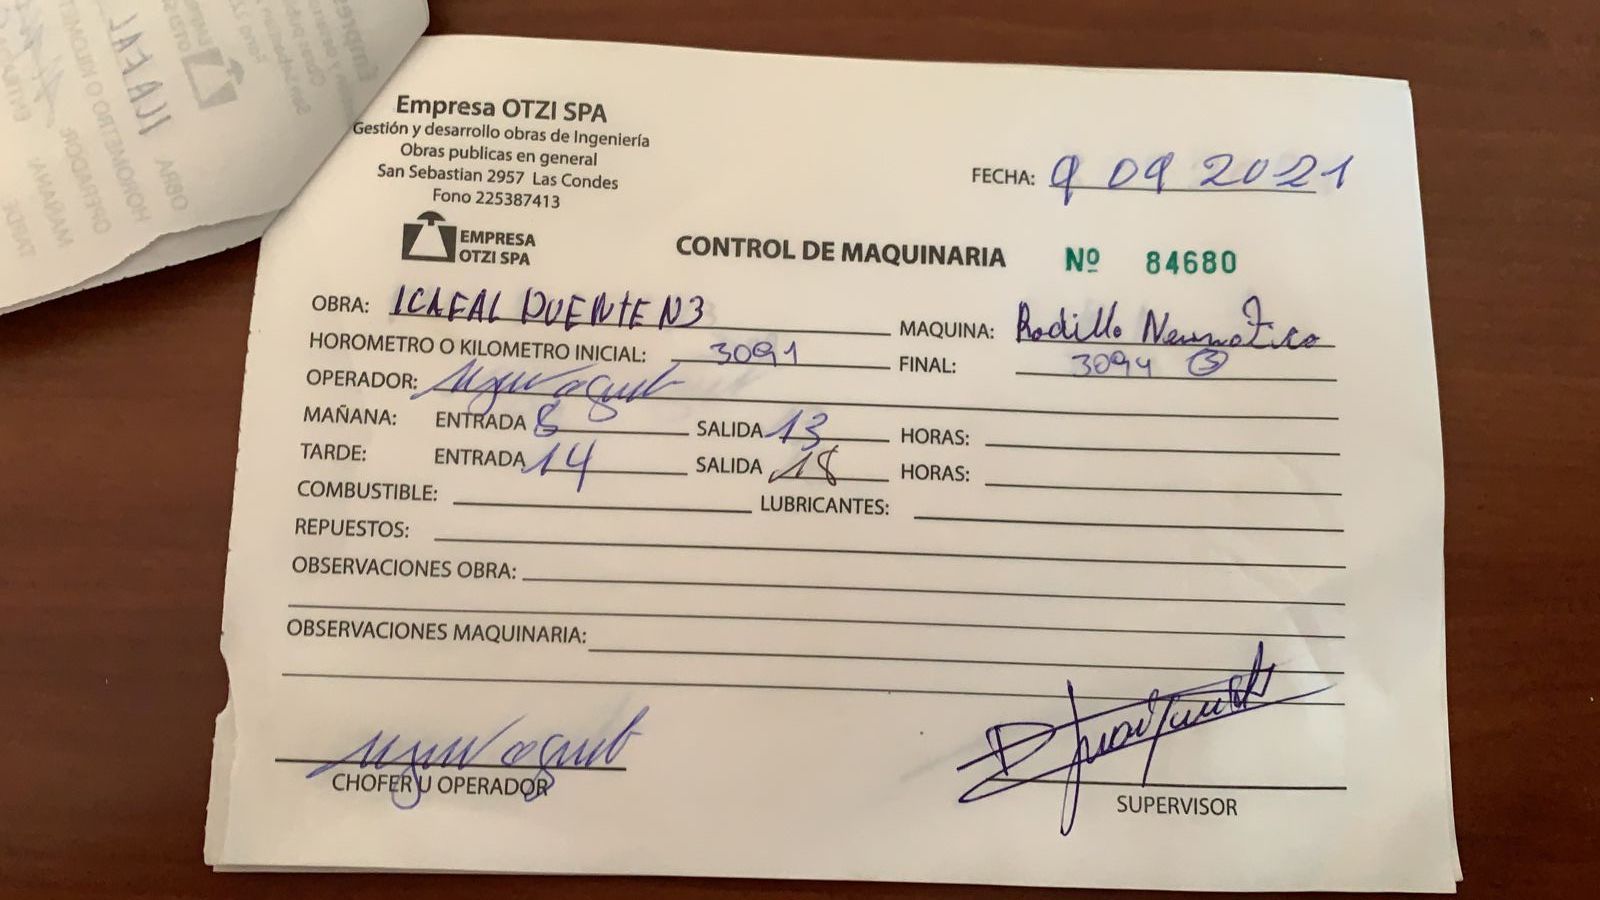 Empresa OTZI SPA
Gestión y desarrollo obras de Ingeniería
Obras publicas en general
San Sebastian 2957 Las Condes
Fono 225387413
FECHA: 9 09 2021
EMPRESA
OTZI SPA
CONTROL DE MAQUINARIA Nº 84680
OBRA: ICAFAL PUENTE N3 MAQUINA: Rodillo Neumatico
HOROMETRO O KILOMETRO INICIAL: 3091 FINAL: 3094 3
OPERADOR:
MAÑANA: ENTRADA 8 SALIDA 13 HORAS:
TARDE: ENTRADA 14 SALIDA 18 HORAS:
COMBUSTIBLE: LUBRICANTES:
REPUESTOS:
OBSERVACIONES OBRA:
OBSERVACIONES MAQUINARIA:
CHOFER U OPERADOR
SUPERVISOR